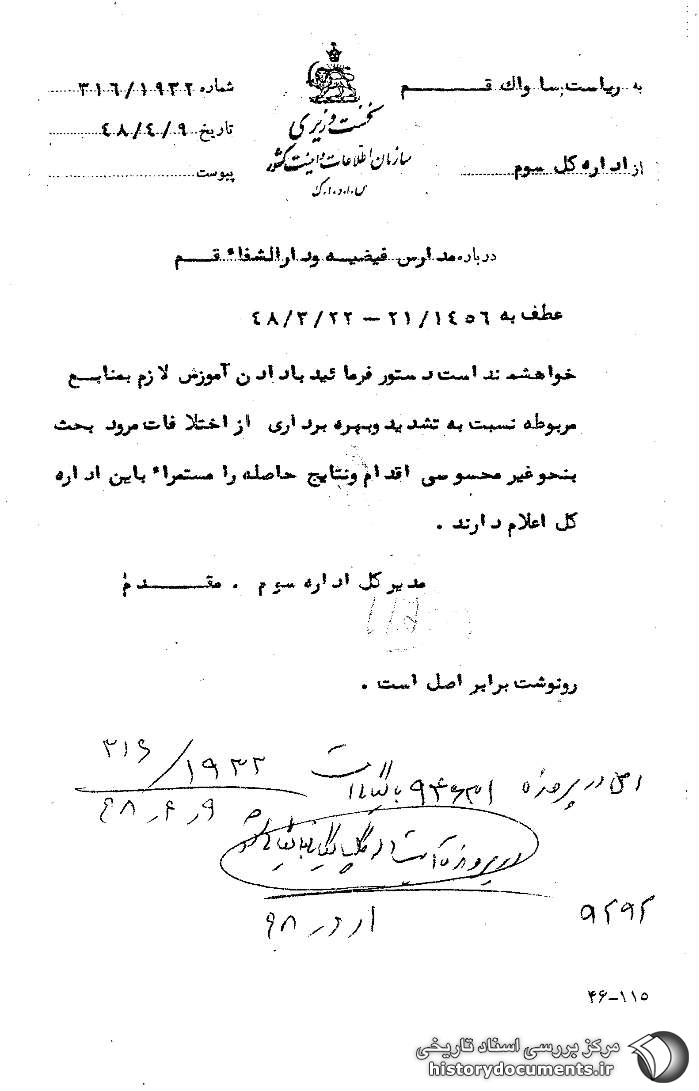 به ریاست ساواك قم
شماره ۳۱۶/۱۹۳۲
نخست وزیری
تاریخ ۴۸/۴/۹
سازمان اطلاعات و امنیت کشور
از اداره كل سوم
پیوست
س.ا.و.ا.ک
درباره مدارس فیضیه ودارالشفاء قم
عطف به ۲۱/۱۴۵۶ – ۴۸/۳/۲۲
خواهشمند است دستور فرمائید بادادن آموزش لازم بمنابع
مربوطه نسبت به تشدید وبهره برداری از اختلافات مرود بحث
بنحو غیر محسوسی اقدام ونتایج حاصله را مستمراء باین اداره
كل اعلام دارند .
مدیركل اداره سوم . مقدم
رونوشت برابر اصل است .
۳۱۶/۱۹۳۲
اصل در پرونده
بایگانی است
۹۲۹۲
۴۶-۱۱۵
مركز بررسی اسناد تاریخی
historydocuments.ir